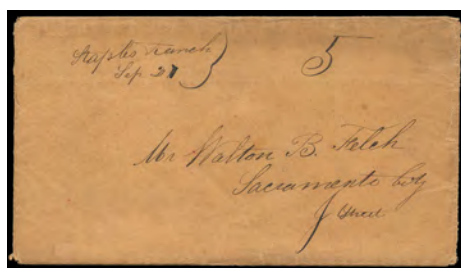 Staples ranch
Sep 27
5
Mr Walton B. Felch
Sacramento City
J Street